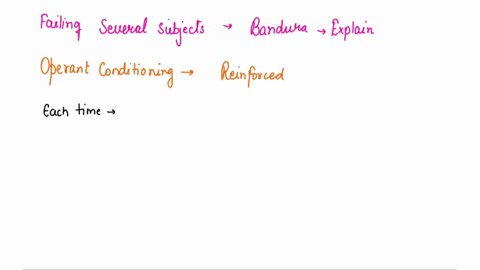 Failing Several subjects → Bandura → Explain
Operant Conditioning → Reinforced
Each time →